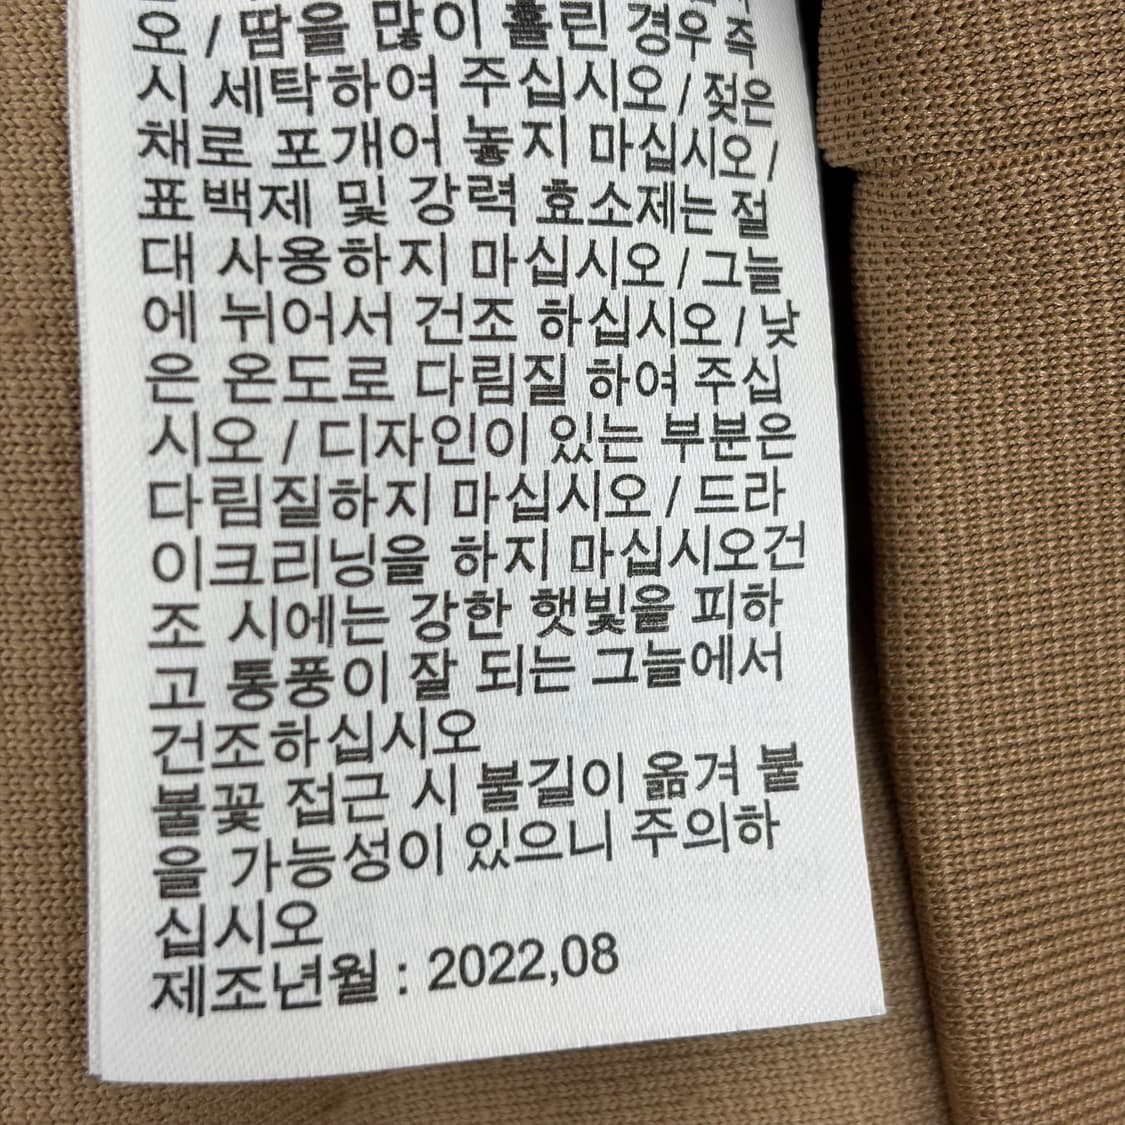 오 / 땀을 많이 흘린 경우 즉
시 세탁하여 주십시오 / 젖은
채로 포개어 놓지 마십시오 /
표백제 및 강력 효소제는 절
대 사용하지 마십시오 / 그늘
에 뉘어서 건조 하십시오 / 낮
은 온도로 다림질 하여 주십
시오 / 디자인이 있는 부분은
다림질하지 마십시오 / 드라
이크리닝을 하지 마십시오건
조 시에는 강한 햇빛을 피하
고 통풍이 잘 되는 그늘에서
건조하십시오
불꽃 접근 시 불길이 옮겨 붙
을 가능성이 있으니 주의하
십시오
제조년월 : 2022,08